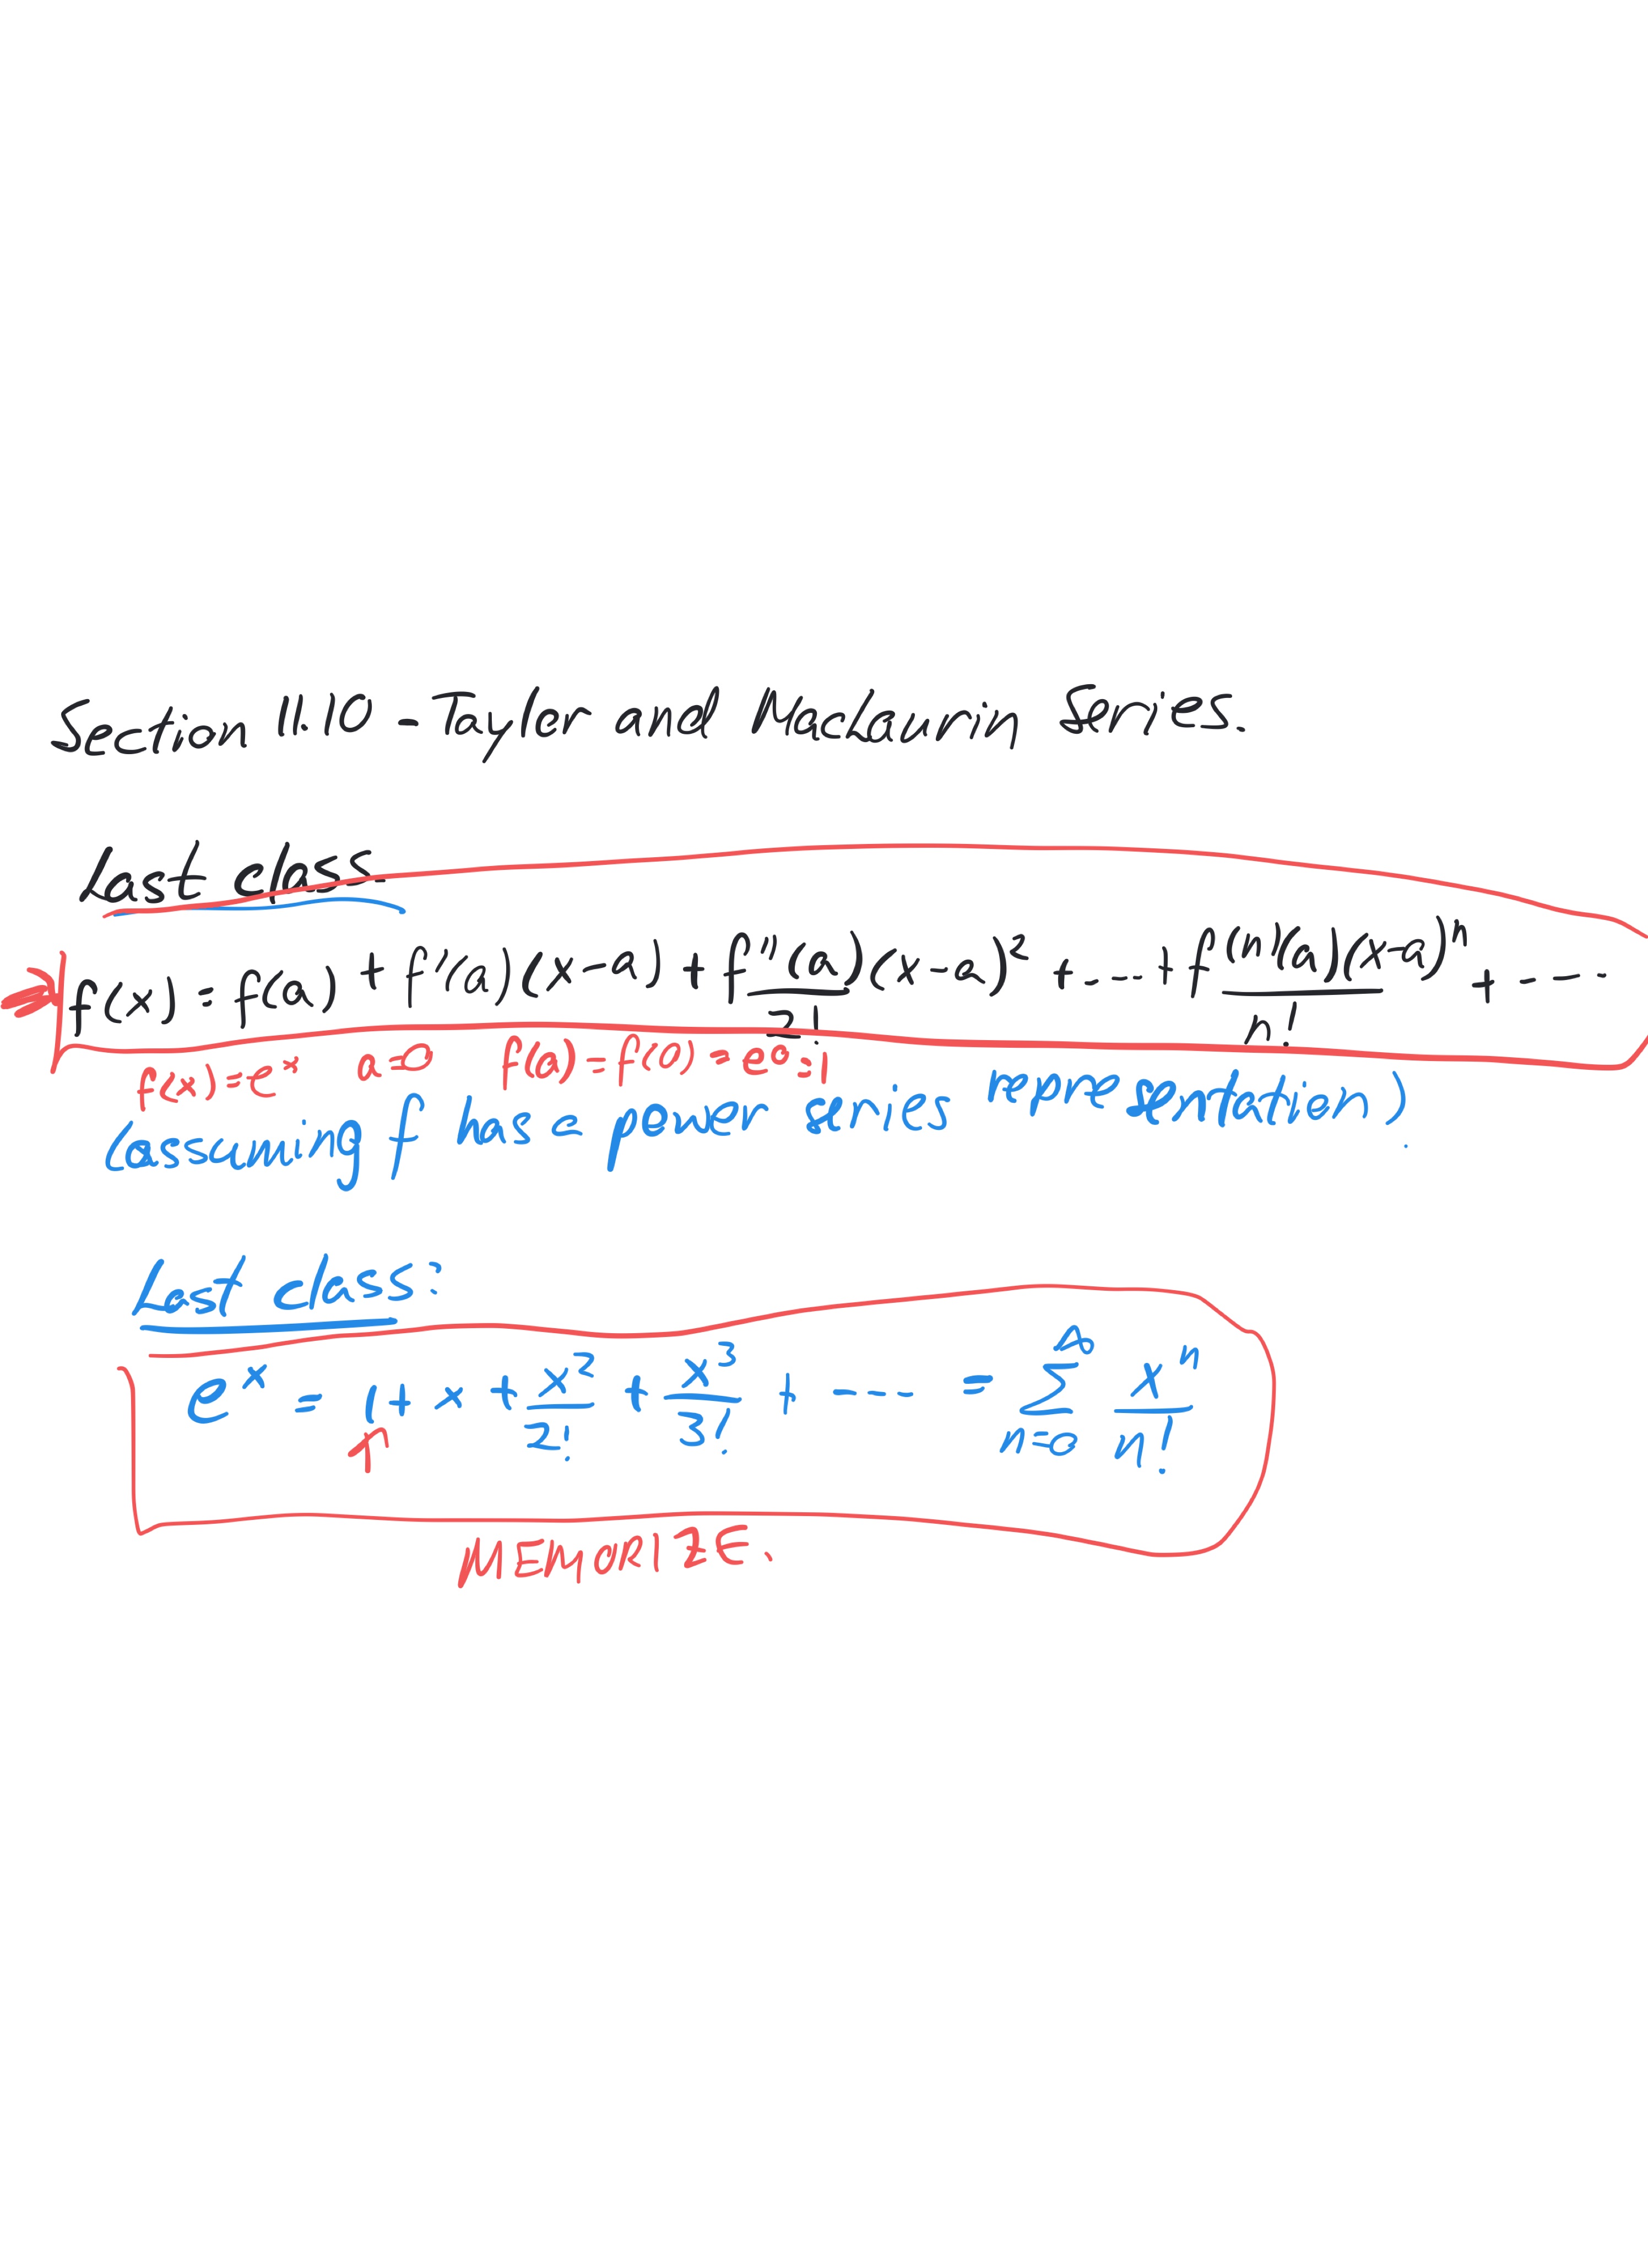 Section 11.10 - Taylor and MacLaurin Series.
Last class
f(x) = f(a) + f'(a)(x-a) + f''(a)(x-a)²/2! + ... + f⁽ⁿ⁾(a)(x-a)ⁿ/n! + ...
f(x)=eˣ a=0 f(a)=f(0)=e⁰=1
(assuming f has a power series representation).
Last class:
eˣ = 1 + x + x²/2! + x³/3! + .... = ∑ₙ₌₀^∞ xⁿ/n!
↑
MEMORIZE.